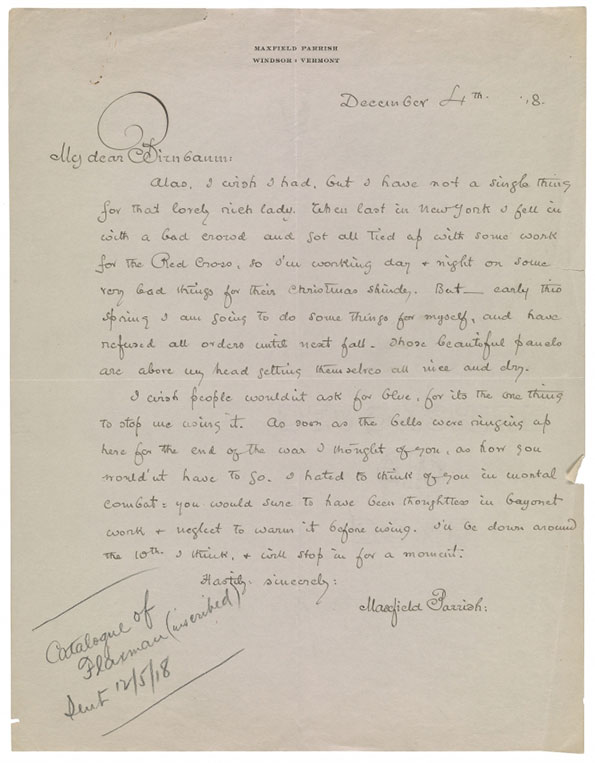 MAXFIELD PARRISH
WINDSOR : VERMONT
December 4th. '18.
My dear Birnbaum:
Alas, I wish I had, but I have not a single thing
for that lovely rich lady. When last in New York I fell in
with a bad crowd and got all tied up with some work
for the Red Cross, so I'm working day + night on some
very bad things for their Christmas shindy. But — early this
spring I am going to do some things for myself, and have
refused all orders until next fall. Those beautiful panels
are above my head getting themselves all nice and dry.
I wish people wouldn't ask for blue, for its the one thing
to stop me using it. As soon as the bells were ringing up
here for the end of the war I thought of you, as how you
would'nt have to go. I hated to think of you in mortal
combat: you would sure to have been thoughtless in bayonet
work + neglect to warm it before using. I'll be down around
the 10th. I think, + will stop in for a moment.
Hastily sincerely:
Maxfield Parrish:
Catalogue of
Flaxman (inscribed)
Sent 12/5/18